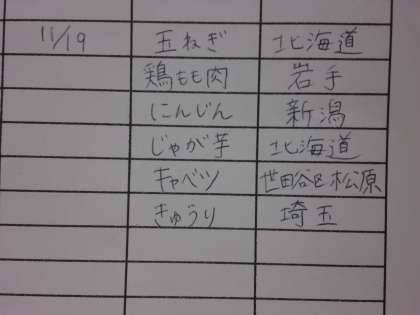 11/19 玉ねぎ 北海道
鶏もも肉 岩手
にんじん 新潟
じゃが芋 北海道
キャベツ 世田谷区松原
きゅうり 埼玉